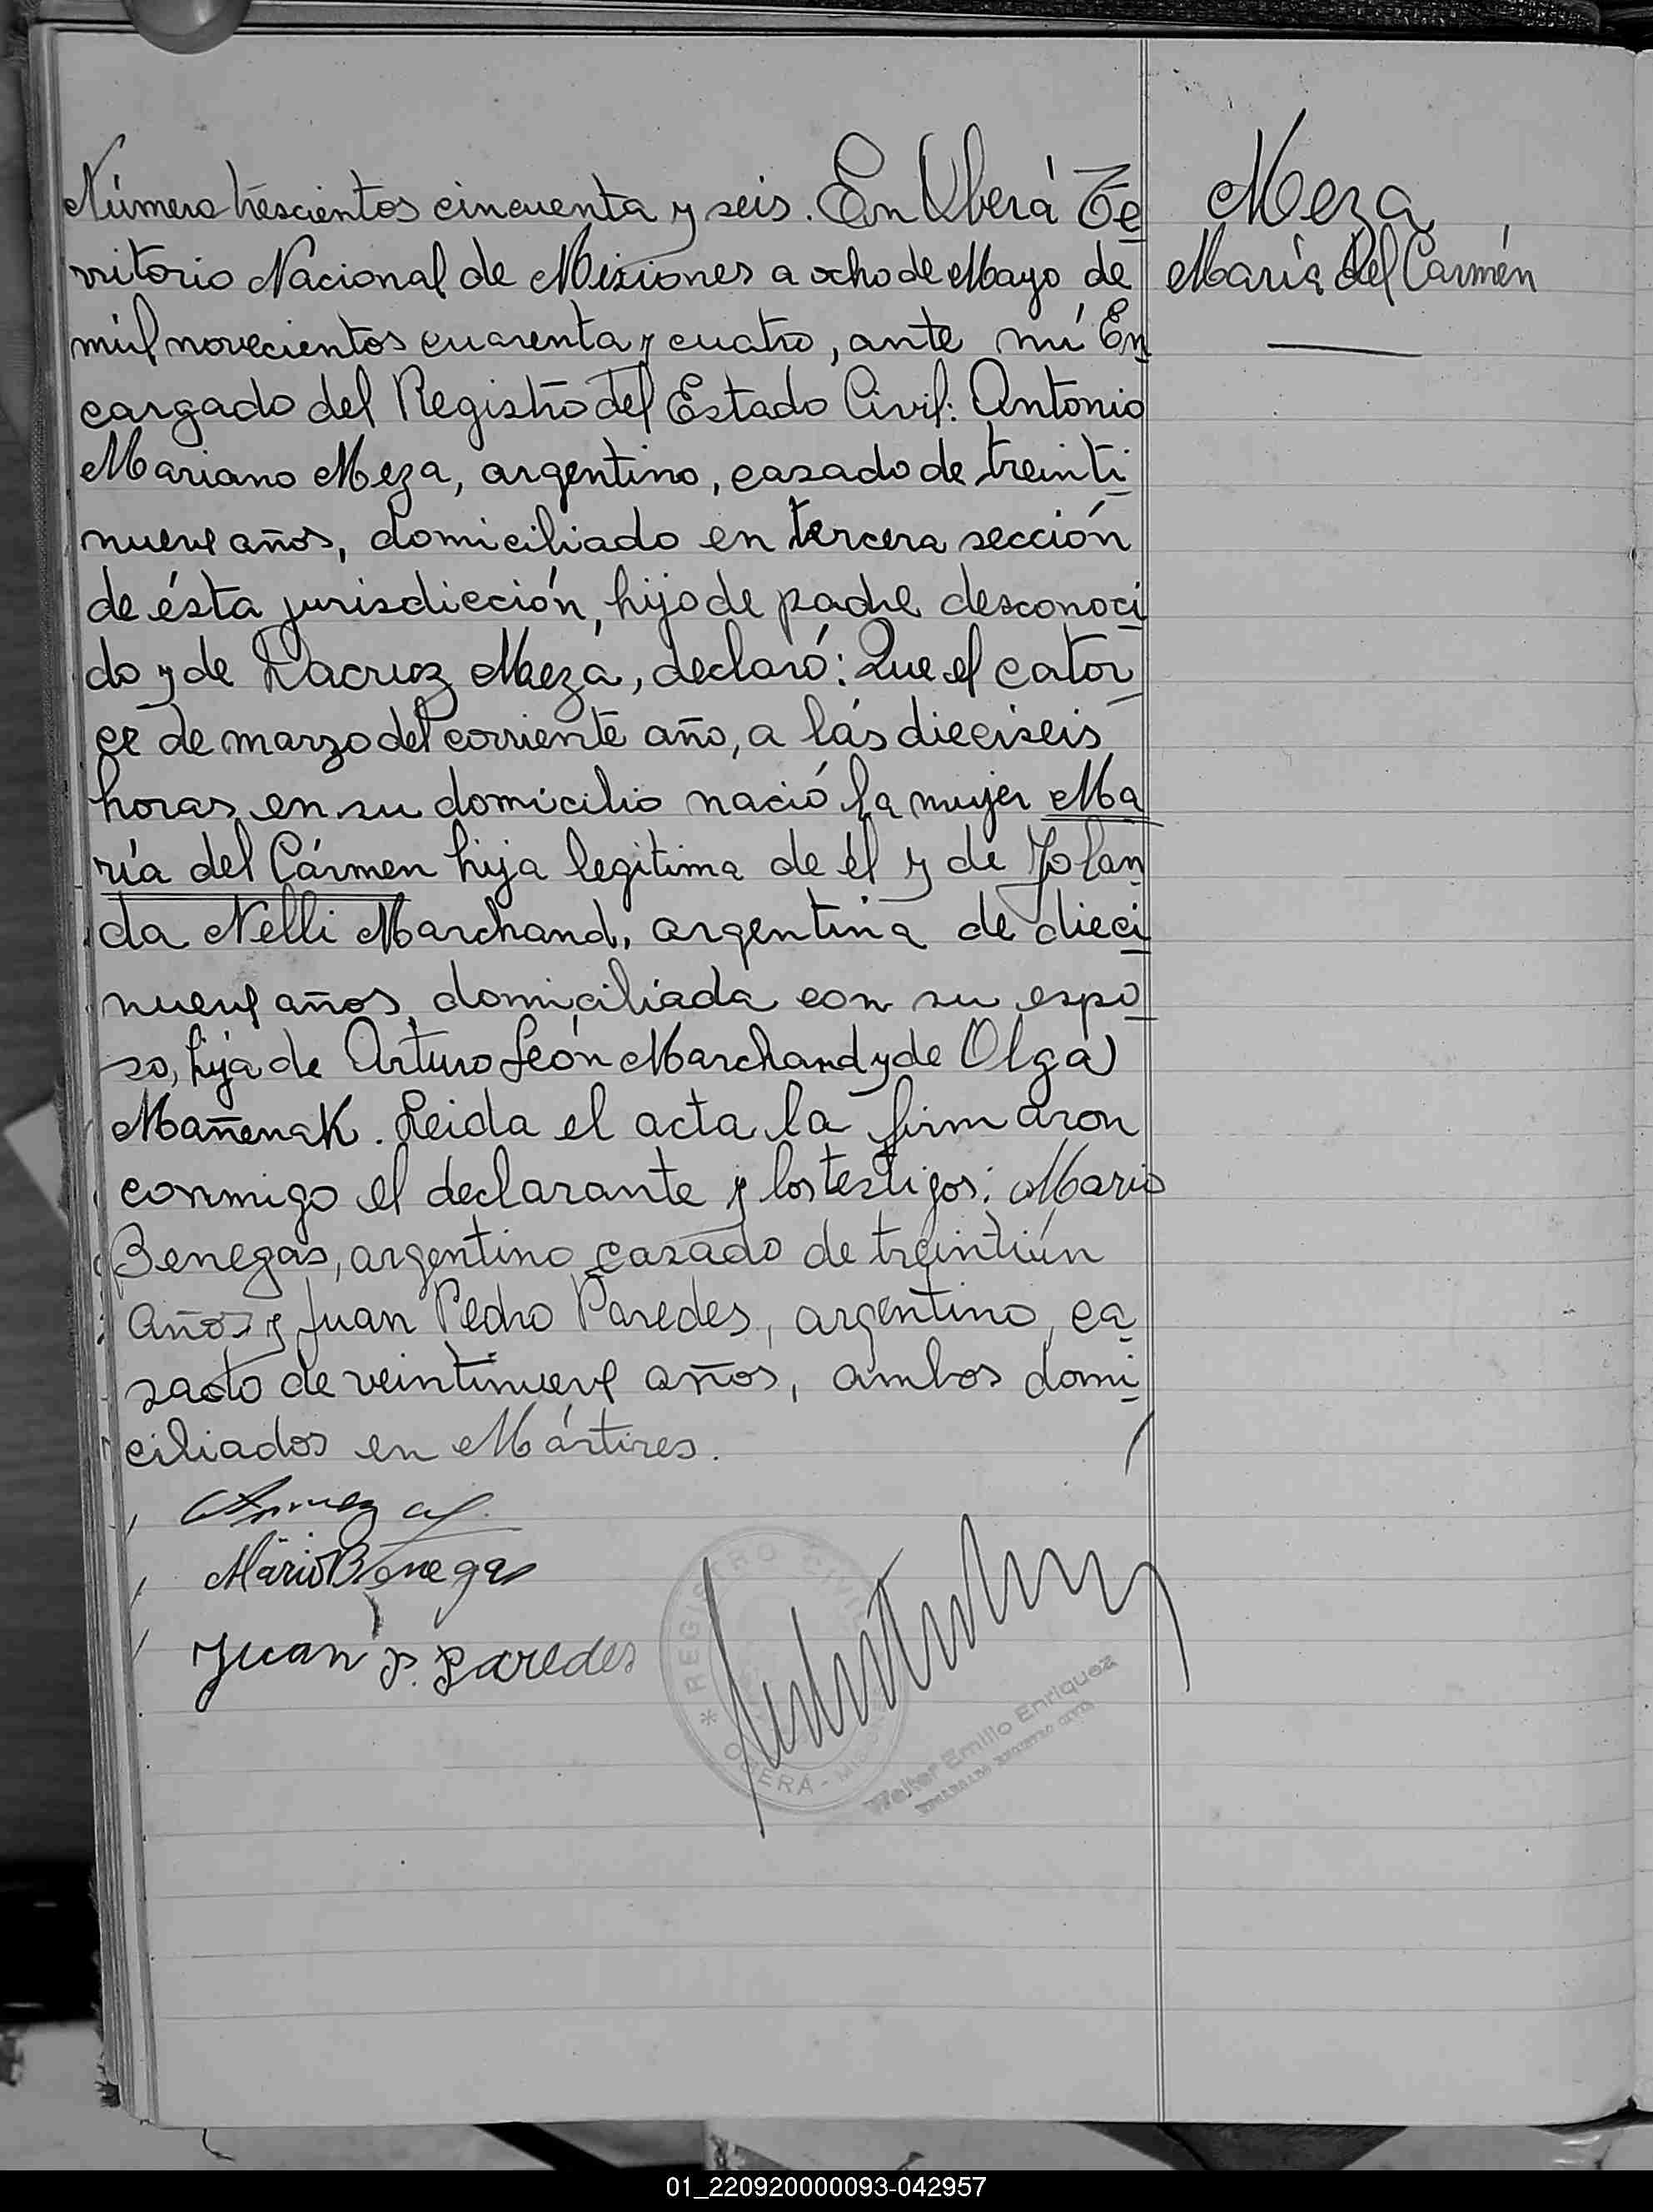 Número trescientos cincuenta y seis. En Oberá Te
rritorio Nacional de Misiones a ocho de Mayo de
mil novecientos cuarenta y cuatro, ante mí En
cargado del Registro del Estado Civil: Antonio
Mariano Meza, argentino, casado de treinti
nueve años, domiciliado en tercera sección
de ésta jurisdicción, hijo de padre desconoci
do y de Dacruz Meza, declaró: Que el cator
ce de marzo del corriente año, a las dieciseis
horas en su domicilio nació la mujer Ma
ría del Cármen hija legitima de él y de Jolan
da Nelli Marchand, argentina de dieci
nueve años, domiciliada con su espo
so, hija de Arturo León Marchand y de Olga
Mañenak. Leida el acta la firmaron
conmigo el declarante y los testigos: Mario
Benegas, argentino casado de treintiún
años y Juan Pedro Paredes, argentino, ca
sado de veintinueve años, ambos domi
ciliados en Mártires.
Meza
María del Carmén
Mario Benegas
Juan P. Paredes
* REGISTRO CIVIL
OBERÁ - MISIONES
Walter Emilio Enriquez
ENCARGADO REGISTRO CIVIL
01_220920000093-042957